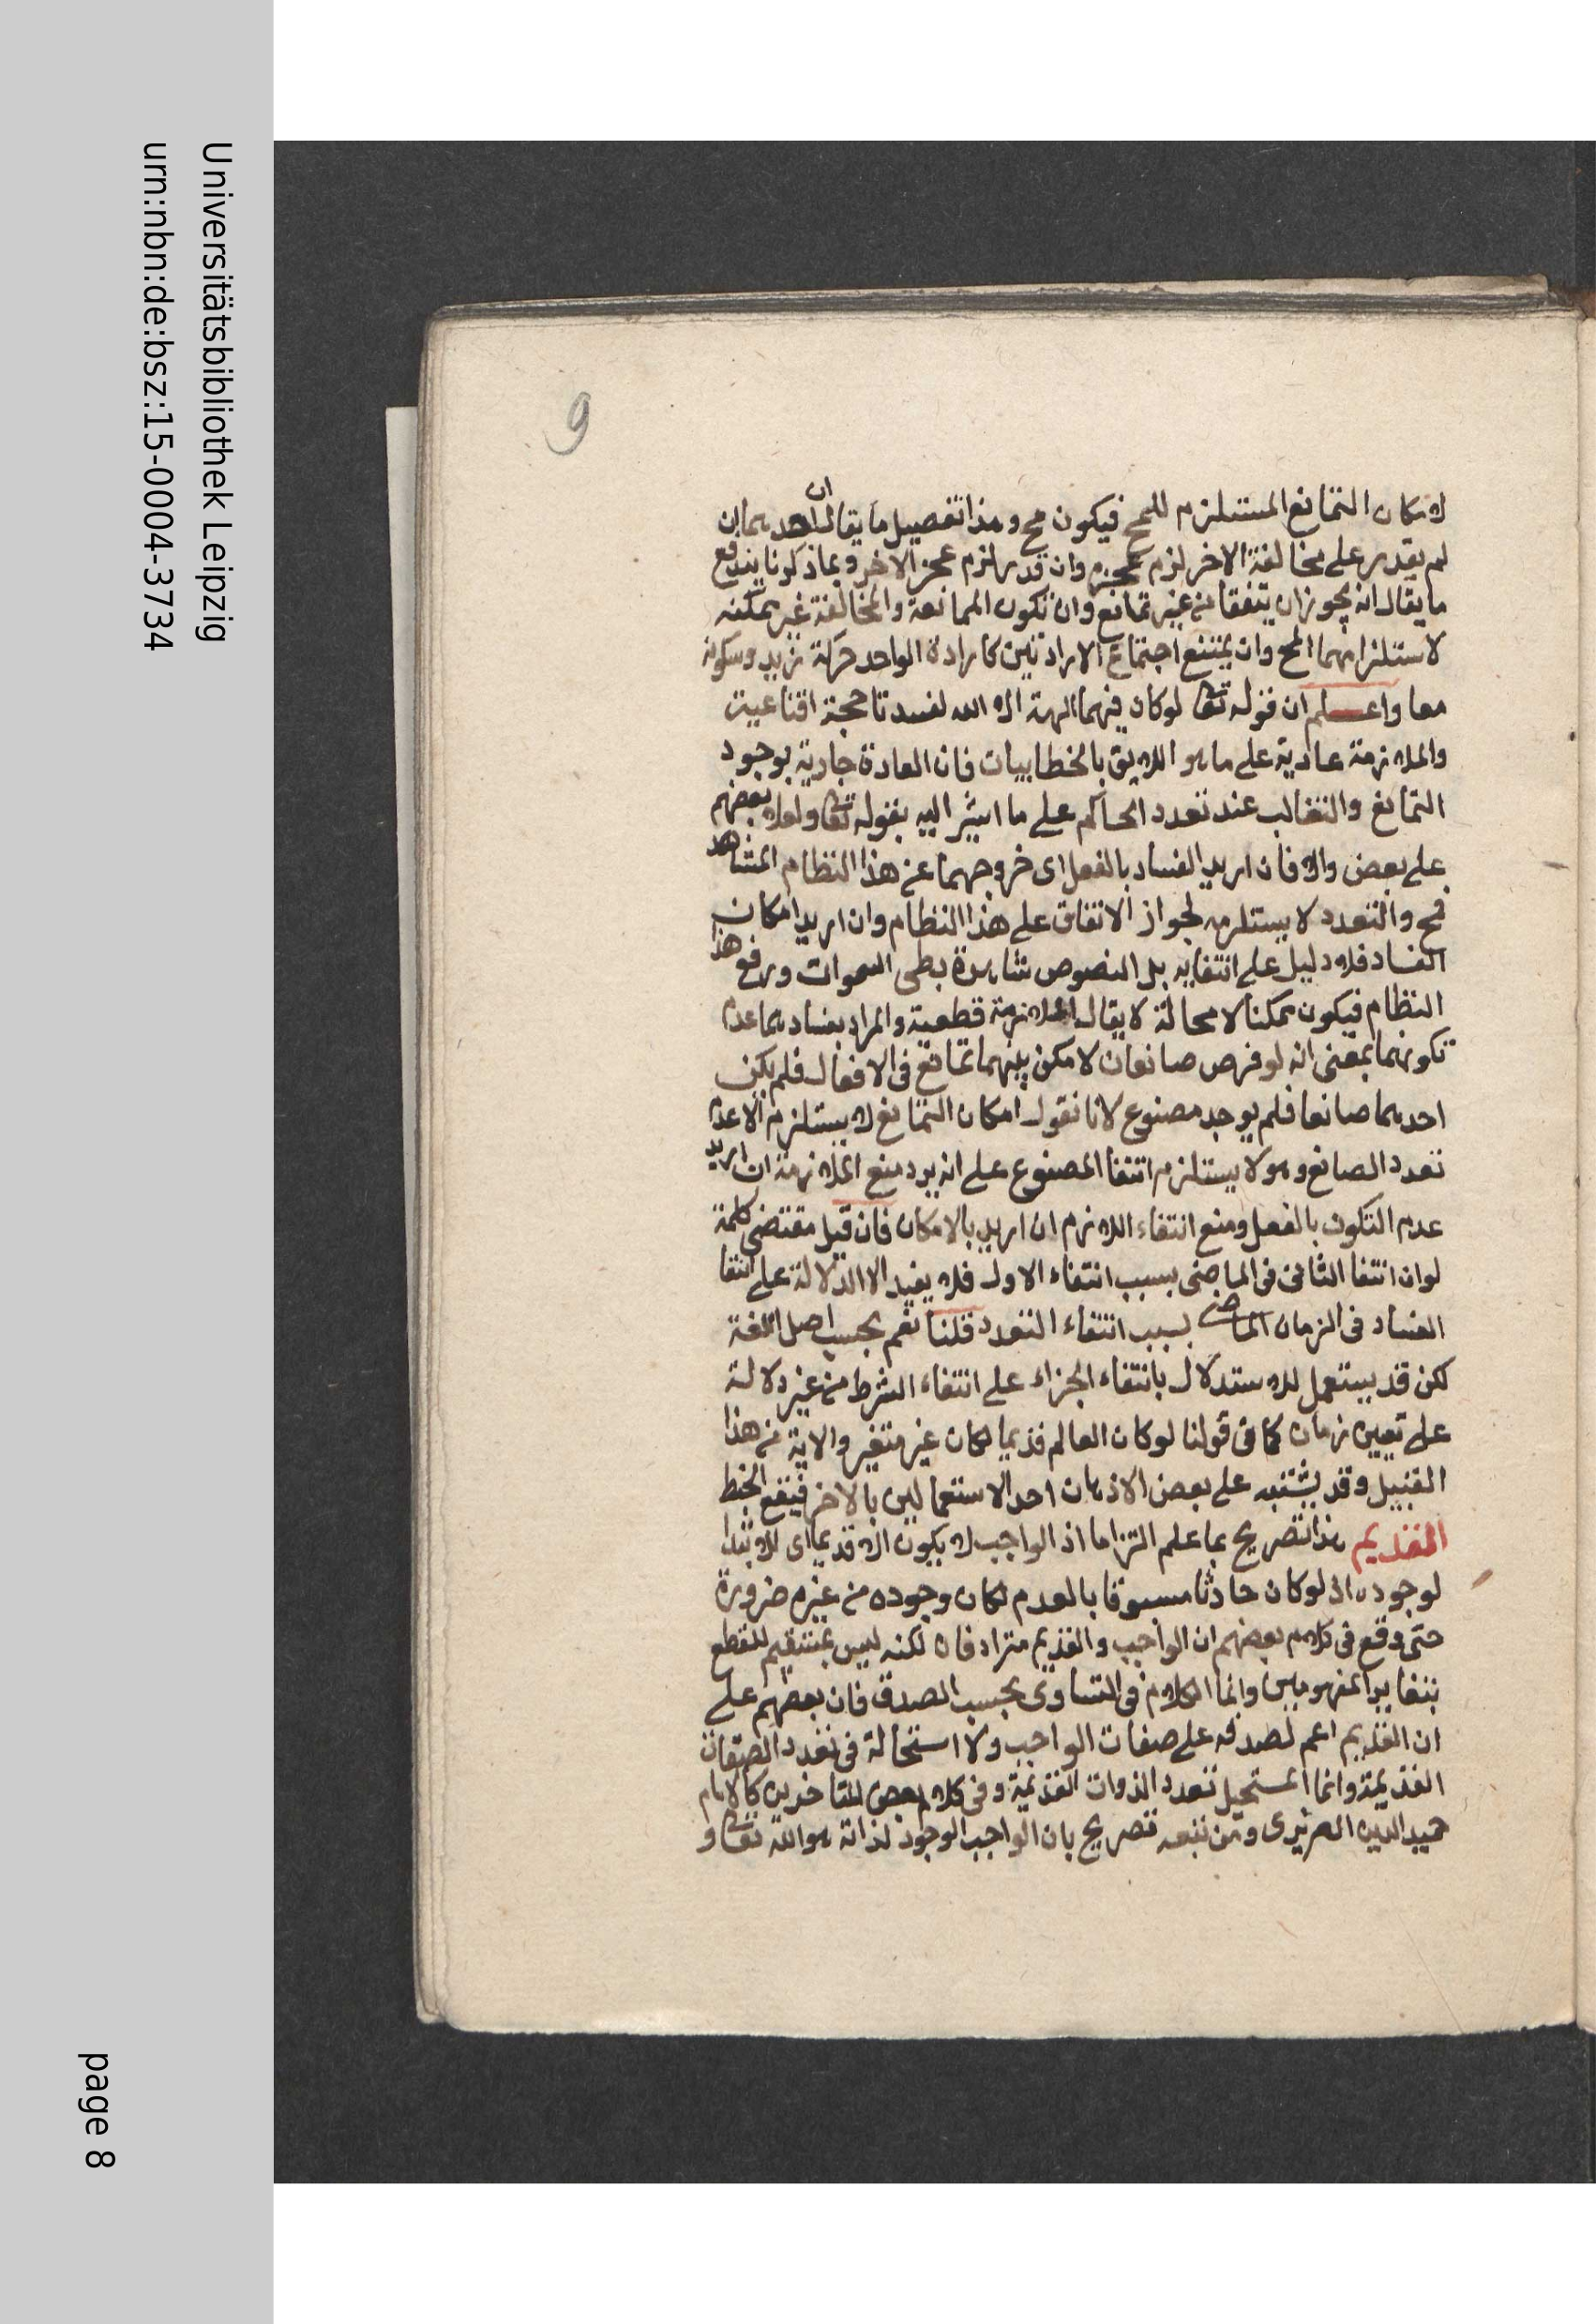 Universitätsbibliothek Leipzig
urn:nbn:de:bsz:15-0004-3734
page 8
9
لامكان التمانع المستلزم للمح فيكون مح وهذا تفصيل ما يقال ان احدهما ان
لم يقدر على مخالفة الاخر لزم عجزه وان قدر لزم عجز الاخر وبما ذكرنا يندفع
ما يقال انه يجوز ان يتفقا من غير تمانع وان تكون الممانعة والمخالفة غير ممكنه
لاستلزامهما المح وان يمتنع اجتماع الارادتين كارادة الواحد حركة زيد وسكونه
معا واعلم ان قوله تعا لوكان فيهما الهة الا الله لفسدتا حجة اقناعية
والملازمة عادية على ما هو اللايق بالخطابيات فان العادة جارية بوجود
التمانع والتغالب عند تعدد الحاكم على ما اشير اليه بقوله تعا ولعلا بعضهم
على بعض والا فان اريد الفساد بالفعل اى خروجهما عن هذا النظام المشاهد
فمح والتعدد لا يستلزمه لجواز الاتفاق على هذا النظام وان اريد امكان
الفساد فلا دليل على انتفايه بل النصوص شاهدة بطى السموات ورفع هذا
النظام فيكون ممكنا لا محالة لا يقال الملازمة قطعية والمراد بفسادهما عدم
تكونهما بمعنى انه لو فرض صانعان لامكن بينهما تمانع فى الافعال فلم يكن
احدهما صانعا فلم يوجد مصنوع لانا نقول امكان التمانع لا يستلزم الا عدم
تعدد الصانع وهو لا يستلزم انتفا المصنوع على انه يرد منع الملازمة ان اريد
عدم التكون بالفعل ومنع انتفاء اللازم ان اريد بالامكان فان قيل مقتضى كلمة
لو ان انتفا الثانى فى الماضى بسبب انتفاء الاول فلا يفيد الا الدلالة على انتفا
الفساد فى الزمان الماضى بسبب انتفاء التعدد قلنا نعم بحسب اصل اللغة
لكن قد يستعمل للاستدلال بانتفاء الجزاء على انتفاء الشرط من غير دلالة
على تعيين زمان كما فى قولنا لوكان العالم قديما لكان غير متغير والاية من هذا
القبيل وقد يشتبه على بعض الاذهان احد الاستعمالين بالاخر فيقع الخبط
القديم هذا تصريح بما علم التزاما اذ الواجب لا يكون الا قديما اى لا ابتدا
لوجوده اذ لوكان حادثا مسبوقا بالعدم لكان وجوده من غيره ضرورة
حتى وقع فى كلام بعضهم ان الواجب والقديم مترادفان لكنه ليس بمستقيم للقطع
بتغاير المفهومين وانما الكلام فى التساوى بحسب الصدق فان بعضهم على
ان القديم اعم لصدقه على صفات الواجب ولا استحالة فى تعدد الصفات
القديمة وانما المستحيل تعدد الذوات القديمة وفى كلام بعض المتاخرين كالامام
حميد الدين الضريرى ومن تبعه تصريح بان الواجب الوجود لذاته هو الله تعا و